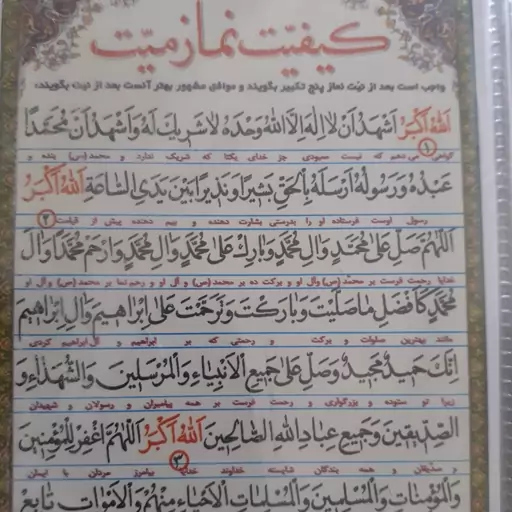 کیفیّت نماز میّت
واجب است بعد از نیّت نماز پنج تکبیر بگویند و موافق مشهور بهتر آنست بعد از نیت بگویند:
اَللهُ اَکْبَرُ اَشْهَدُ اَنْ لا اِلهَ اِلاَّ اللهُ وَحْدَهُ لا شَریكَ لَهُ وَ اَشْهَدُ اَنَّ مُحَمَّدًا
۱ گواهی می دهم که نیست معبودی جز خدای یکتا که شریک ندارد و محمد (ص) بنده و
عَبْدُهُ وَ رَسُولُهُ اَرْسَلَهُ بِالْحَقِّ بَشیرًا وَ نَذیرًا بَیْنَ یَدَیِ السّاعَةِ اَللهُ اَکْبَرُ
رسول اوست فرستاده او را بدرستی بشارت دهنده و بیم دهنده پیش از قیامت ۲
اَللّهُمَّ صَلِّ عَلی مُحَمَّدٍ وَ الِ مُحَمَّدٍ وَ بارِكْ عَلی مُحَمَّدٍ وَ الِ مُحَمَّدٍ وَ ارْحَمْ مُحَمَّدًا وَ الَ
خدایا رحمت فرست بر محمّد (ص) وآل او و برکت ده بر محمد (ص) و آل او و رحم نما بر محمد (ص) وآل او
مُحَمَّدٍ كَاَفْضَلِ ما صَلَّیْتَ وَ بارَكْتَ وَ تَرَحَّمْتَ عَلی اِبْراهیمَ وَ الِ اِبْراهیمَ
مانند بهترین صلوات و برکت و رحمتی که بر ابراهیم و آل ابراهیم کردی
اِنَّكَ حَمیدٌ مَجیدٌ وَ صَلِّ عَلی جَمیعِ الْاَنْبِیاءِ وَ الْمُرْسَلینَ وَ الشُّهَداءِ وَ
زیرا تو ستوده و بزرگواری و رحمت فرست بر همه پیامبران و رسولان و شهیدان
الصِّدّیقینَ وَ جَمیعِ عِبادِ اللهِ الصّالِحینَ اَللهُ اَکْبَرُ اَللّهُمَّ اغْفِرْ لِلْمُؤْمِنینَ
و صدّیقان و همه بندگان شایسته خداوند ۳ خدایا بیامرز مردان با ایمان
وَ الْمُؤْمِناتِ وَ الْمُسْلِمینَ وَ الْمُسْلِماتِ الْاَحْیاءِ مِنْهُمْ وَ الْاَمْواتِ تابِعْ